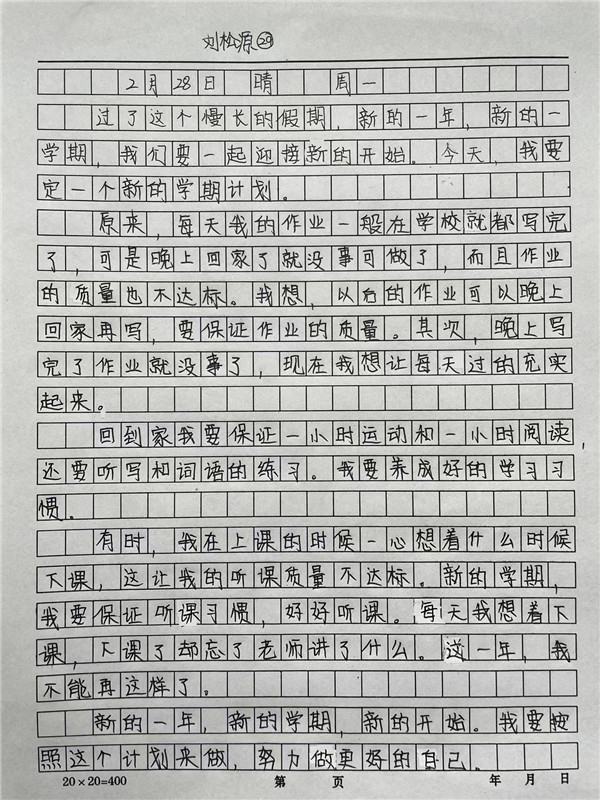 刘松源㉙
2月28日 晴 周一
过了这个慢长的假期，新的一年，新的一
学期，我们要一起迎接新的开始。今天，我要
定一个新的学期计划。
原来，每天我的作业一般在学校就都写完
了，可是晚上回家了就没事可做了，而且作业
的质量也不达标。我想，以后的作业可以晚上
回家再写，要保证作业的质量。其次，晚上写
完了作业就没事了，现在我想让每天过的充实
起来。
回到家我要保证一小时运动和一小时阅读，
还要听写和词语的练习。我要养成好的学习习
惯。
有时，我在上课的时候一心想着什么时候
下课，这让我的听课质量不达标。新的学期，
我要保证听课习惯，好好听课。每天我想着下
课，下课了却忘了老师讲了什么。这一年，我
不能再这样了。
新的一年，新的学期，新的开始。我要按
照这个计划来做，努力做更好的自己。
20×20=400 第 页 年 月 日